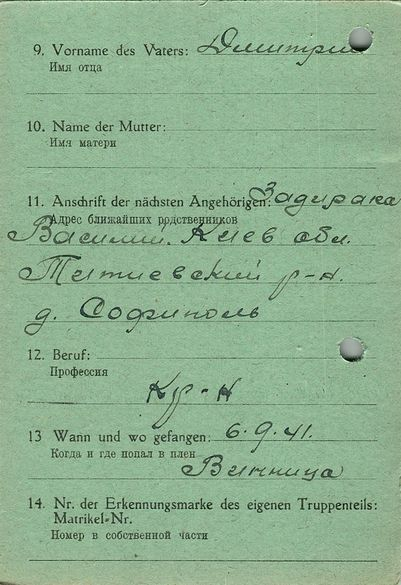 9. Vorname des Vaters: Дмитрий
Имя отца
10. Name der Mutter:
Имя матери
11. Anschrift der nächsten Angehörigen: Задирака
Адрес ближайших родственников
Василий. Киев обл.
Тетиевский р-н.
д. Софиполь
12. Beruf:
Профессия
Кр-н
13 Wann und wo gefangen: 6.9.41.
Когда и где попал в плен
Винница
14. Nr. der Erkennungsmarke des eigenen Truppenteils:
Matrikel-Nr.
Номер в собственной части